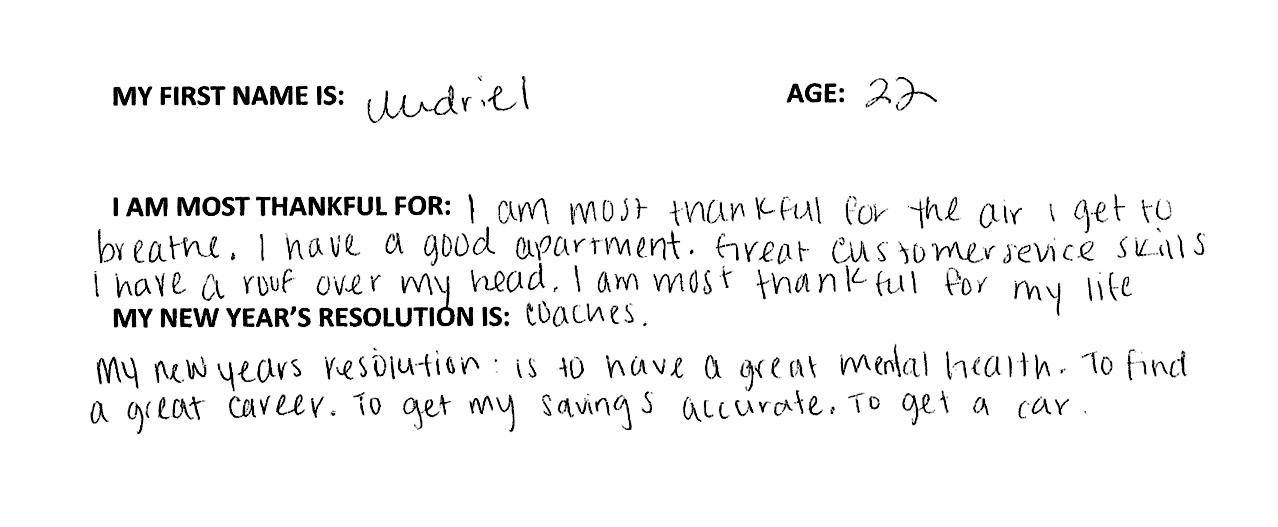 MY FIRST NAME IS: Audriel AGE: 22
I AM MOST THANKFUL FOR: I am most thankful for the air i get to
breathe. I have a good apartment. Great customer sevice skills
I have a roof over my head. I am most thankful for my life
MY NEW YEAR'S RESOLUTION IS: coaches.
My new years resolution: is to have a great mental health. To find
a great career. To get my savings accurate. To get a car.